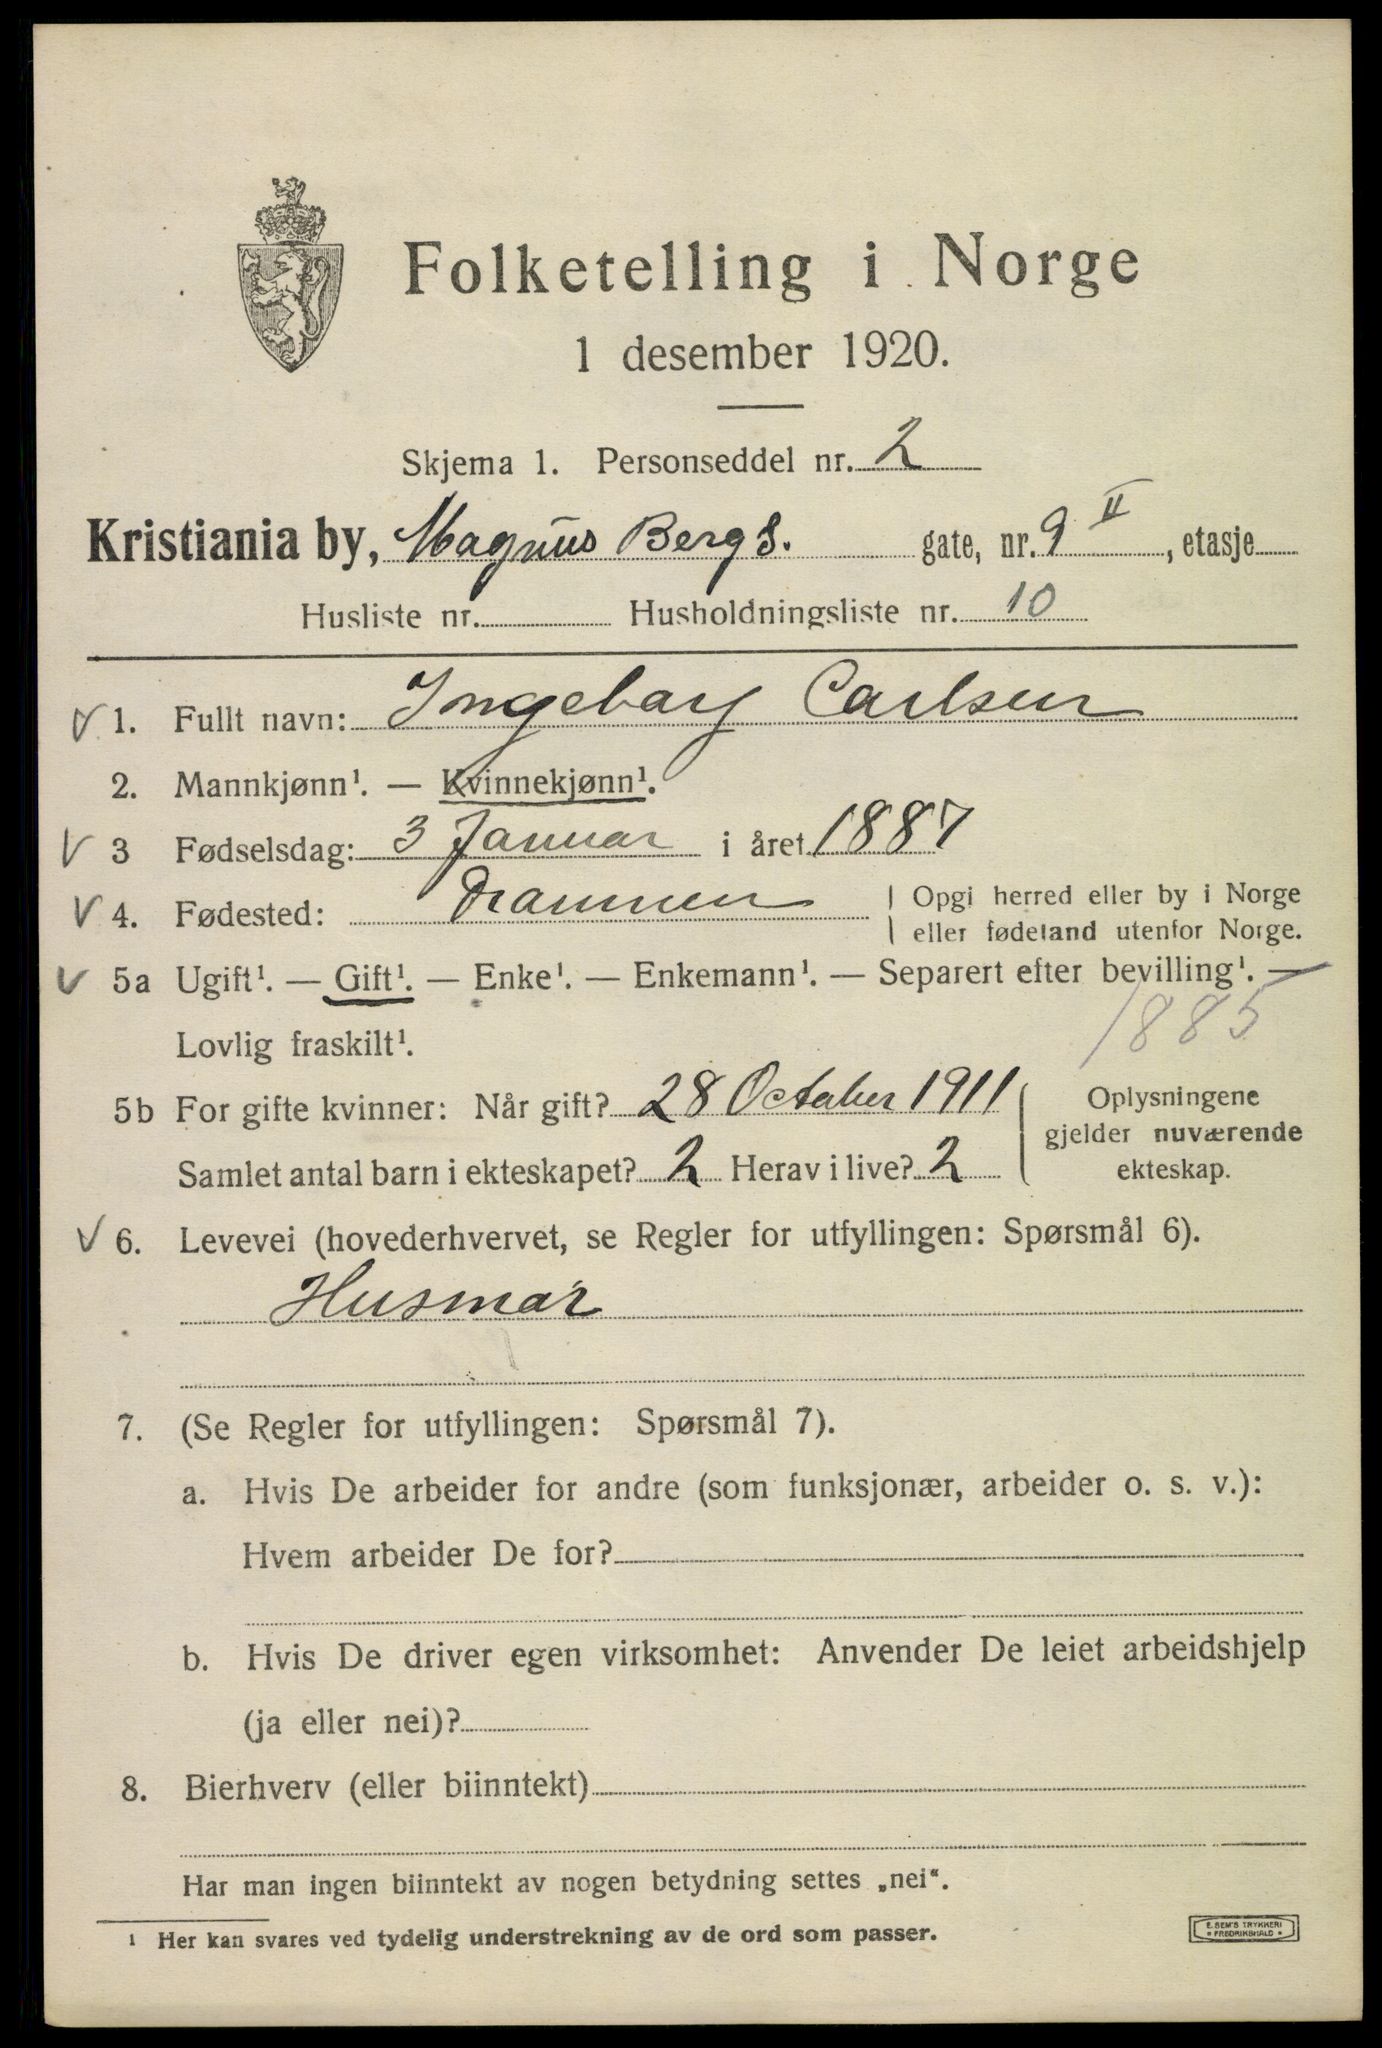 Folketelling i Norge
1 desember 1920.
Skjema 1. Personseddel nr. 2
Kristiania by, Magnus Bergs. gate, nr. 9 II, etasje
Husliste nr. Husholdningsliste nr. 10
V 1. Fullt navn: Ingeborg Carlsen
2. Mannkjønn¹. — Kvinnekjønn¹.
V 3 Fødselsdag: 3 Januar i året 1887
V 4. Fødested: Drammen
Opgi herred eller by i Norge
eller fødeland utenfor Norge.
V 5a Ugift¹. — Gift¹. — Enke¹. — Enkemann¹. — Separert efter bevilling¹. —
Lovlig fraskilt¹.
1885
5b For gifte kvinner: Når gift? 28 October 1911
Samlet antal barn i ekteskapet? 2 Herav i live? 2
Oplysningene
gjelder nuværende
ekteskap.
V 6. Levevei (hovederhvervet, se Regler for utfyllingen: Spørsmål 6).
Husmor
7. (Se Regler for utfyllingen: Spørsmål 7).
a. Hvis De arbeider for andre (som funksjonær, arbeider o. s. v.):
Hvem arbeider De for?
b. Hvis De driver egen virksomhet: Anvender De leiet arbeidshjelp
(ja eller nei)?
8. Bierhverv (eller biinntekt)
Har man ingen biinntekt av nogen betydning settes „nei“.
¹ Her kan svares ved tydelig understrekning av de ord som passer.
E. SEM'S TRYKKERI
* FREDRIKSHALD *